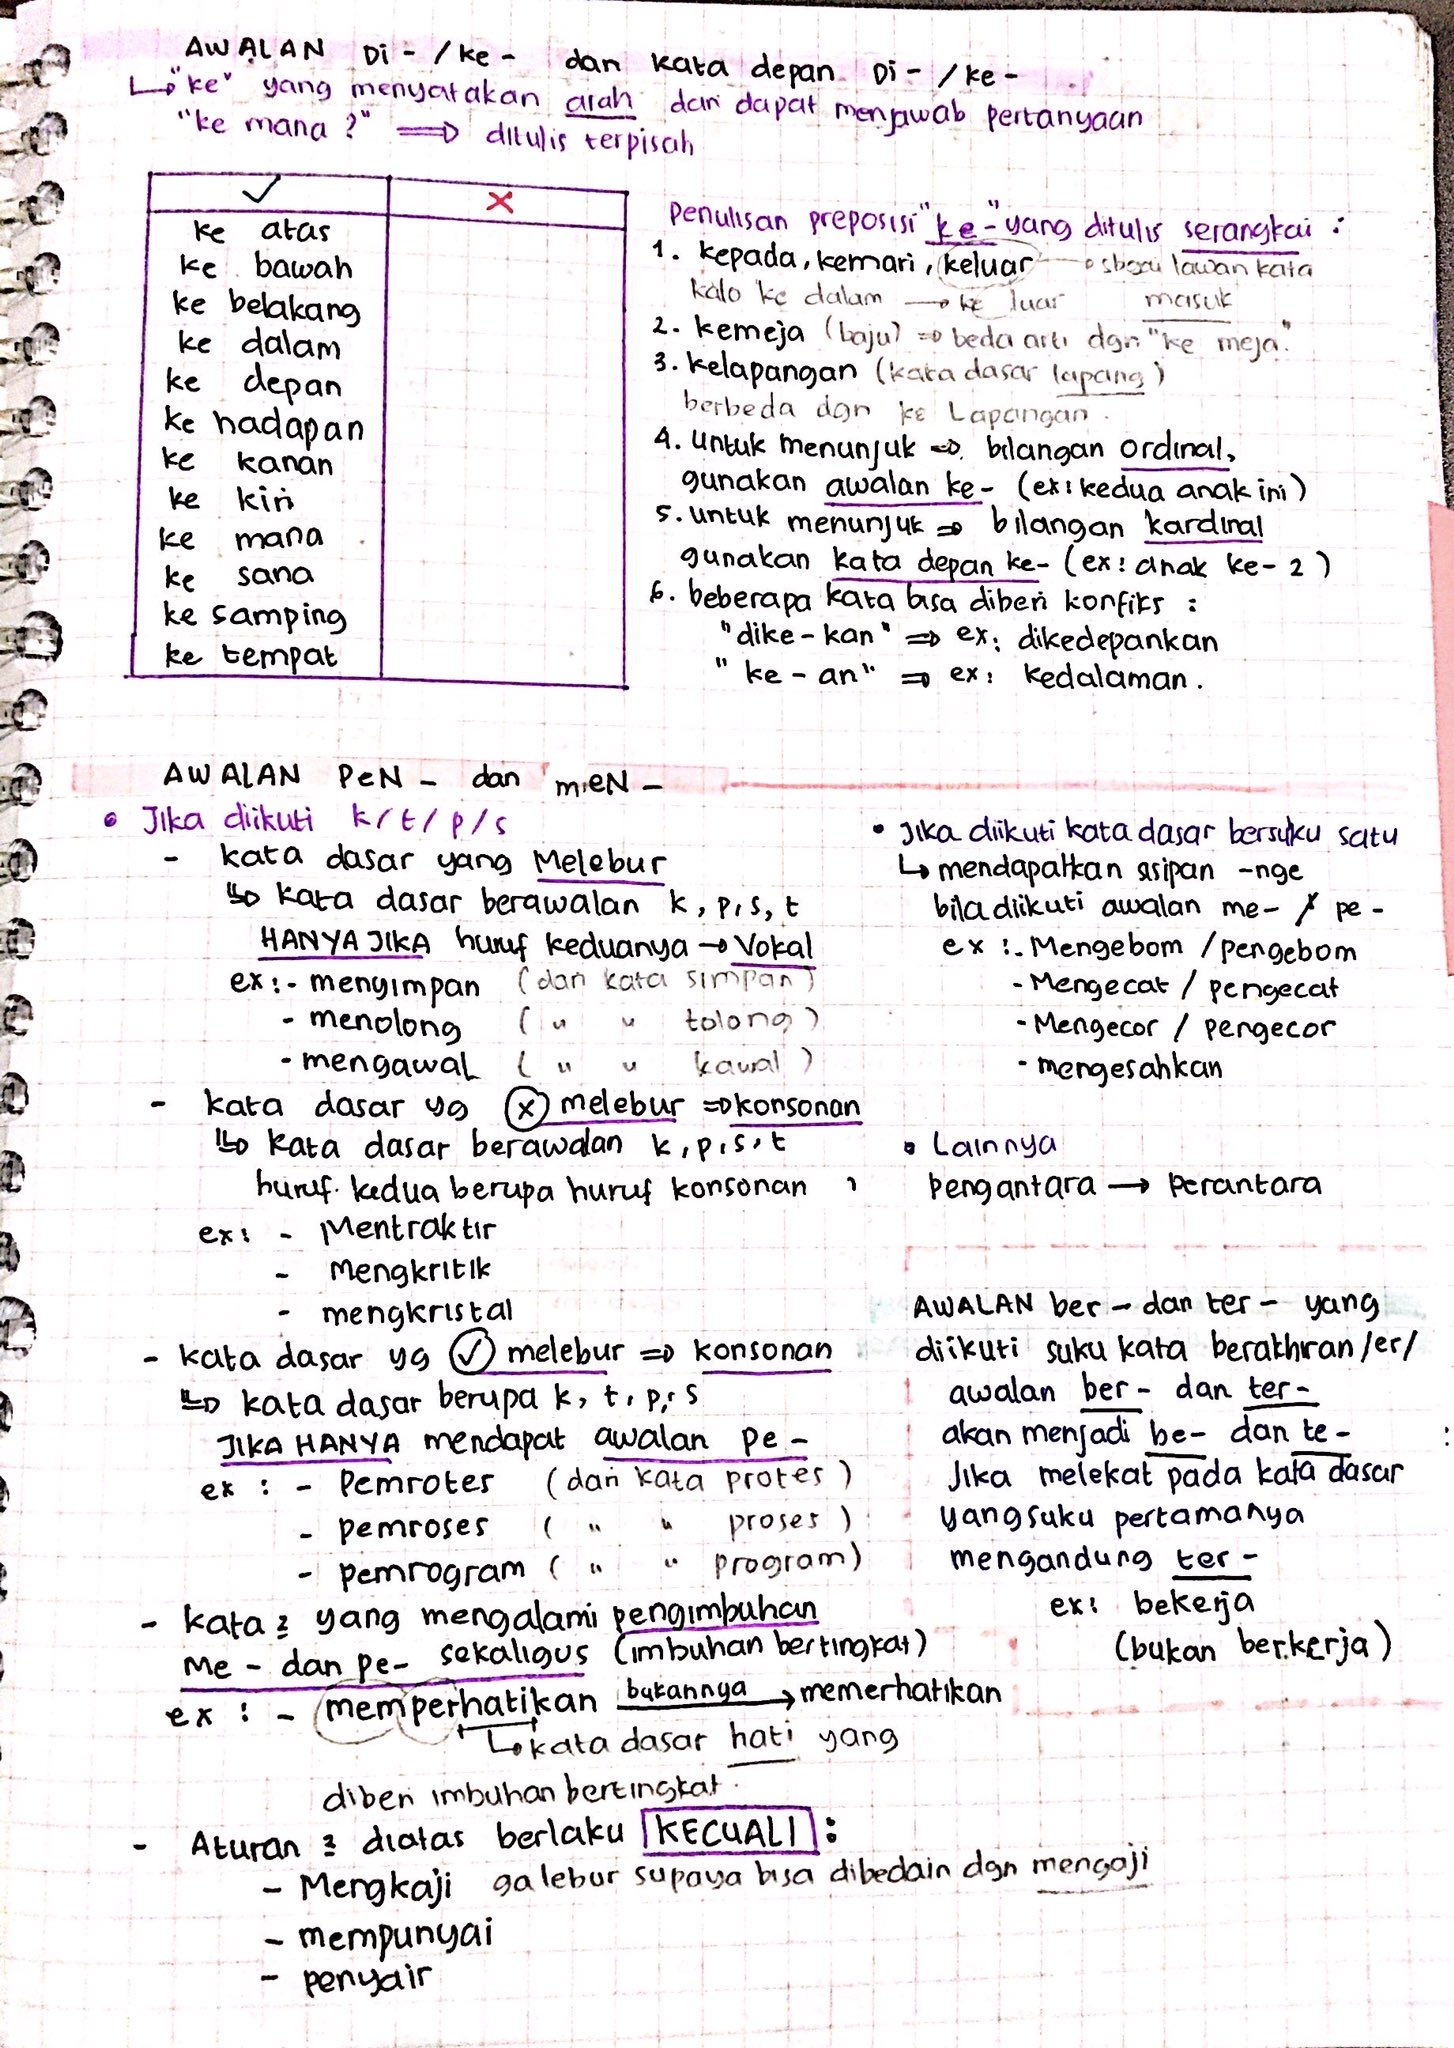 AWALAN Di - / ke - dan kata depan Di - / ke -
↳ "ke" yang menyatakan arah dan dapat menjawab pertanyaan
"ke mana ?" ⇒ ditulis terpisah
✓ ✗
ke atas
ke bawah
ke belakang
ke dalam
ke depan
ke hadapan
ke kanan
ke kiri
ke mana
ke sana
ke samping
ke tempat
Penulisan preposisi "ke-" yang ditulis serangkai :
1. kepada, kemari, keluar → sbgai lawan kata
kalo ke dalam → ke luar masuk
2. kemeja (baju) ⇒ beda arti dgn "ke meja."
3. kelapangan (kata dasar lapang)
berbeda dgn ke Lapangan.
4. untuk menunjuk ⇒ bilangan ordinal,
gunakan awalan ke- (ex: kedua anak ini)
5. untuk menunjuk ⇒ bilangan kardinal
gunakan kata depan ke- (ex: anak ke-2)
6. beberapa kata bisa diberi konfiks :
"dike-kan" ⇒ ex: dikedepankan
"ke-an" ⇒ ex: kedalaman.
AWALAN PeN - dan meN -
• Jika diikuti k/t/p/s
- kata dasar yang Melebur
↳ kata dasar berawalan k, p, s, t
HANYA JIKA huruf keduanya → Vokal
ex : - menyimpan (dari kata simpan)
- menolong ( " " tolong)
- mengawal ( " " kawal)
- kata dasar yg ⓧ melebur ⇒ konsonan
↳ kata dasar berawalan k, p, s, t
huruf kedua berupa huruf konsonan
ex : - Mentraktir
- Mengkritik
- mengkristal
- kata dasar yg ✓ melebur ⇒ konsonan
↳ kata dasar berupa k, t, p, s
JIKA HANYA mendapat awalan pe -
ex : - Pemrotes (dari kata protes)
- pemroses ( " " proses)
- pemrogram ( " " program)
- kata2 yang mengalami pengimbuhan
Me - dan pe- sekaligus (imbuhan bertingkat)
ex : - memperhatikan bukannya → memerhatikan
↳ kata dasar hati yang
diberi imbuhan bertingkat.
- Aturan2 diatas berlaku KECUALI :
- Mengkaji ga lebur supaya bisa dibedain dgn mengaji
- mempunyai
- penyair
• Jika diikuti kata dasar bersuku satu
↳ mendapatkan sisipan -nge
bila diikuti awalan me- / pe -
ex : - Mengebom / pengebom
- Mengecat / pengecat
- Mengecor / pengecor
- mengesahkan
• Lainnya
Pengantara → Perantara
AWALAN ber - dan ter - yang
diikuti suku kata berakhiran /er/
awalan ber - dan ter -
akan menjadi be- dan te -
Jika melekat pada kata dasar
yang suku pertamanya
mengandung ter -
ex: bekerja
(bukan berkerja)